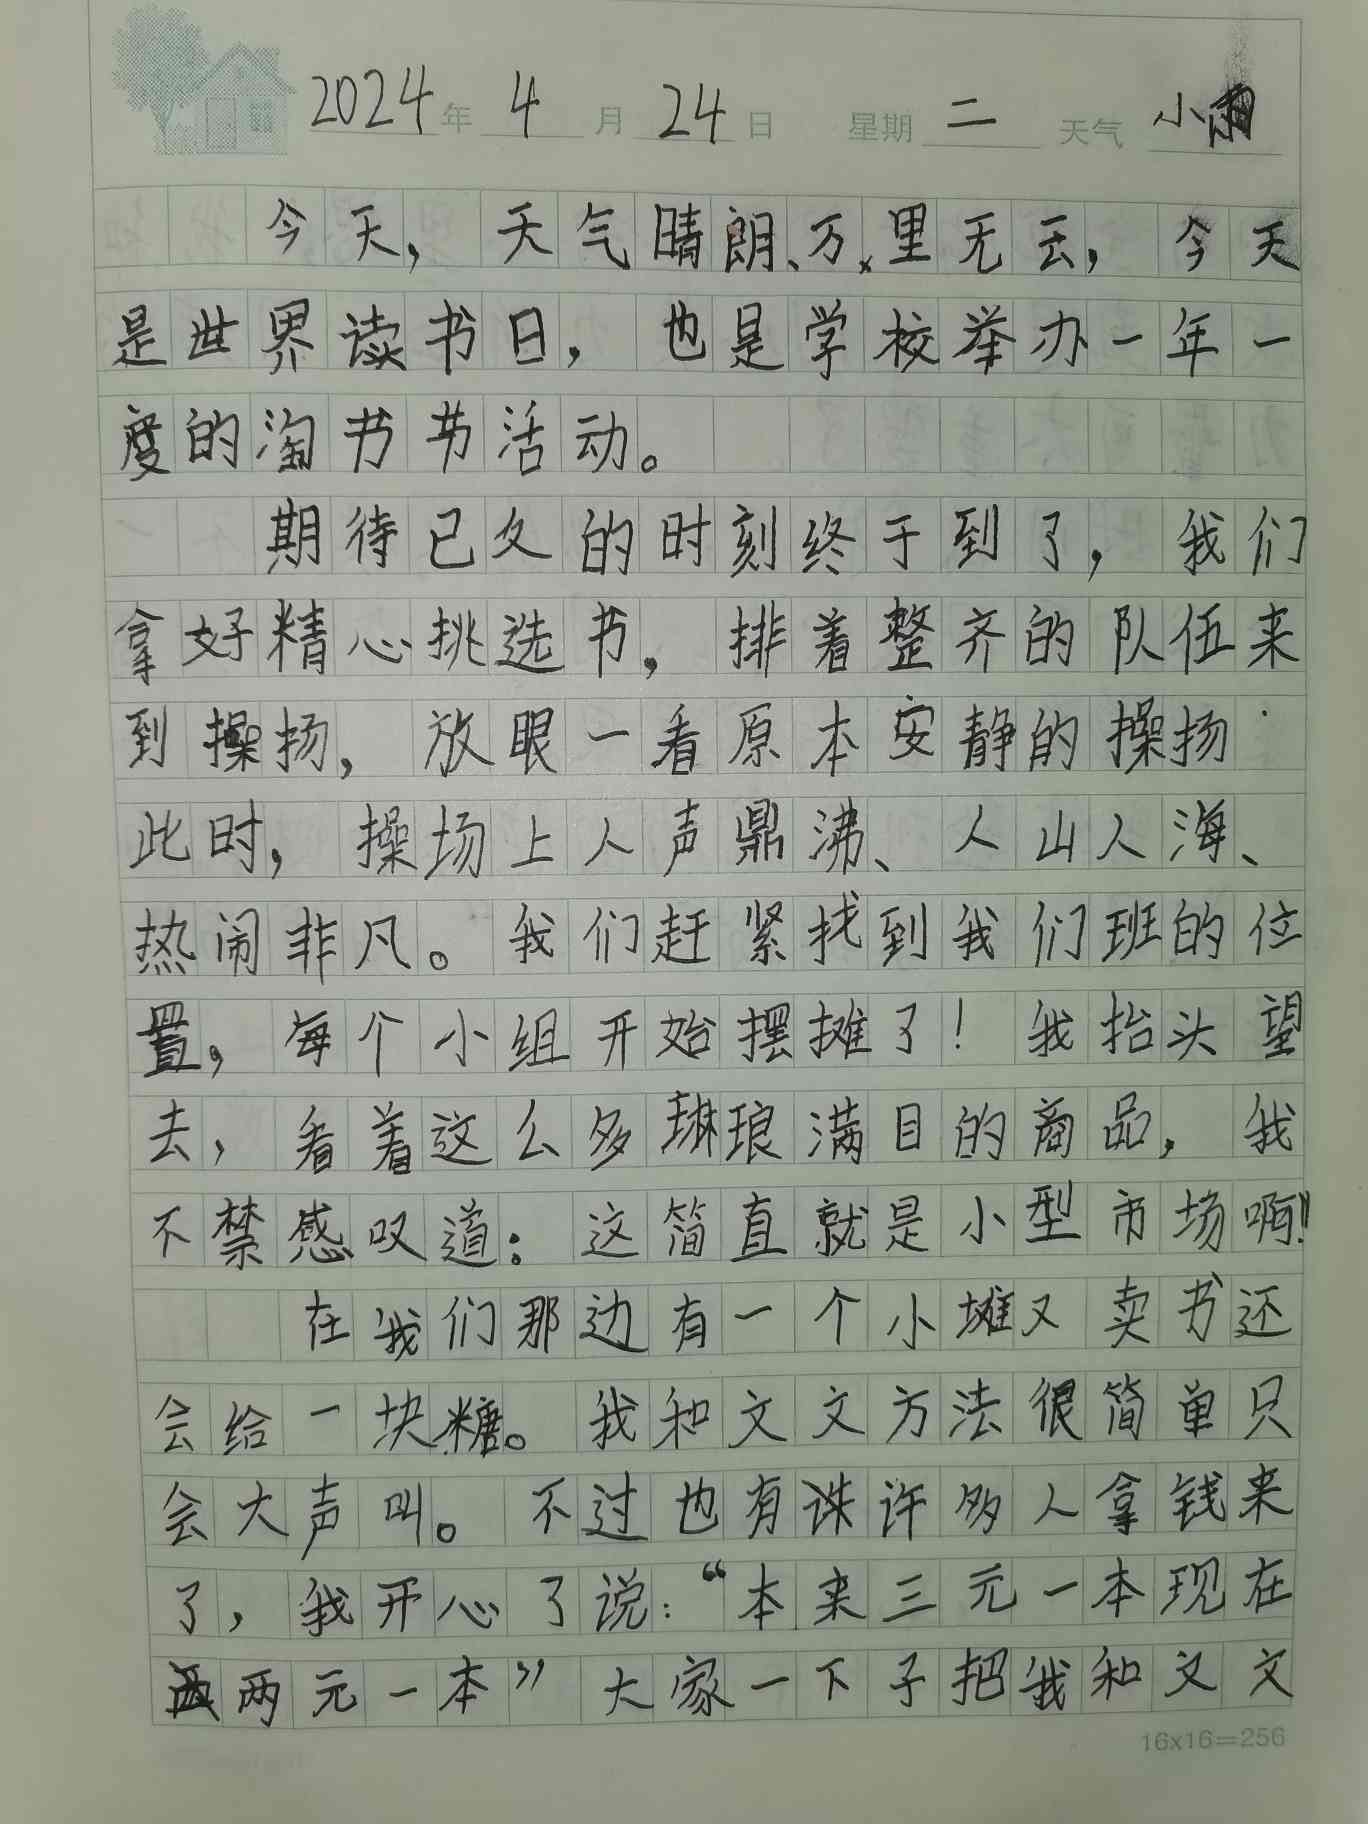 2024年4月24日 星期二 天气小雨
今天，天气晴朗、万里无云，今天
是世界读书日，也是学校举办一年一
度的淘书节活动。
期待已久的时刻终于到了，我们
拿好精心挑选书，排着整齐的队伍来
到操扬，放眼一看原本安静的操扬
此时，操场上人声鼎沸、人山人海、
热闹非凡。我们赶紧找到我们班的位
置，每个小组开始摆摊了！我抬头望
去，看着这么多琳琅满目的商品，我
不禁感叹道：这简直就是小型市场啊！
在我们那边有一个小摊又卖书还
会给一块糖。我和文文方法很简单只
会大声叫。不过也有许多人拿钱来
了，我开心了说：“本来三元一本现在
两元一本”大家一下子把我和文文
16x16=256